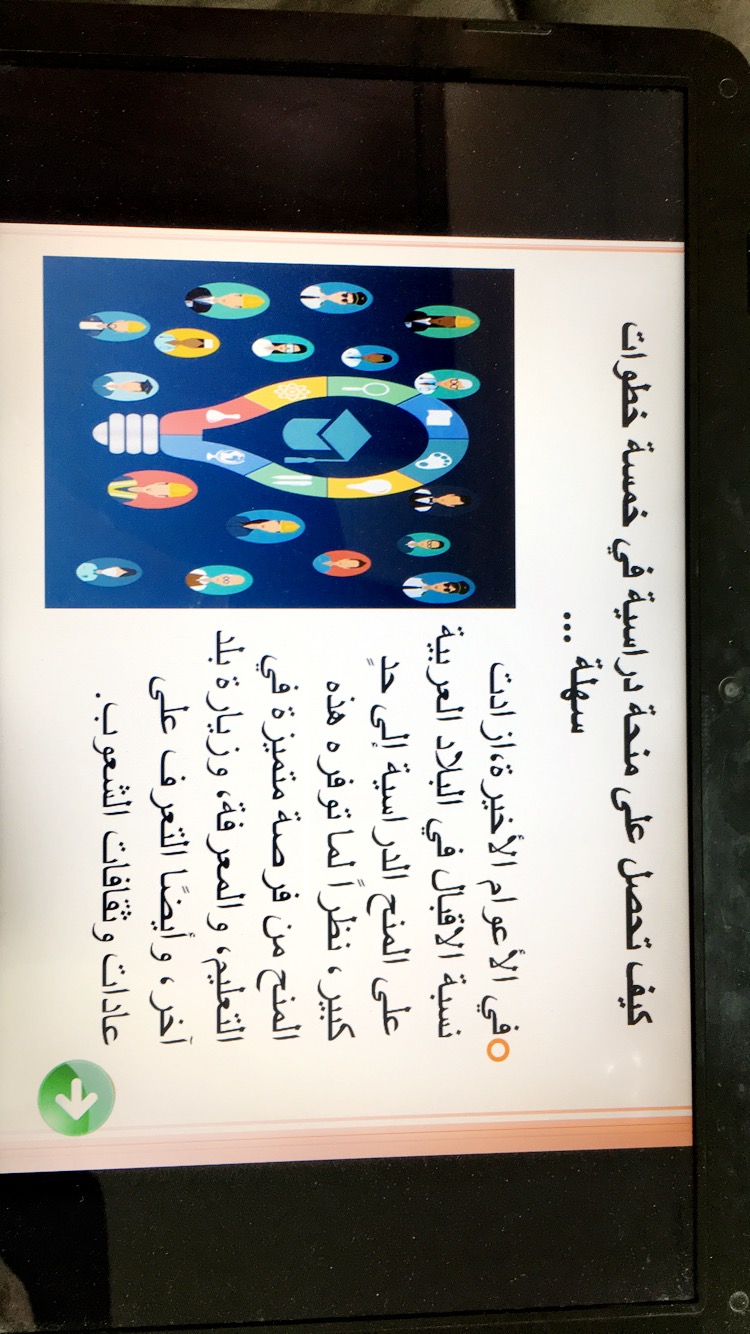 كيف تحصل على منحة دراسية في خمسة خطوات
سهلة ...
في الأعوام الأخيرة،ازادت
نسبة الاقبال في البلاد العربية
على المنح الدراسية إلى حدٍ
كبير، نظراً لما توفره هذه
المنح من فرصة متميزة في
التعليم، والمعرفة، وزيارة بلد
آخر، وأيضًا التعرف على
عادات وثقافات الشعوب.